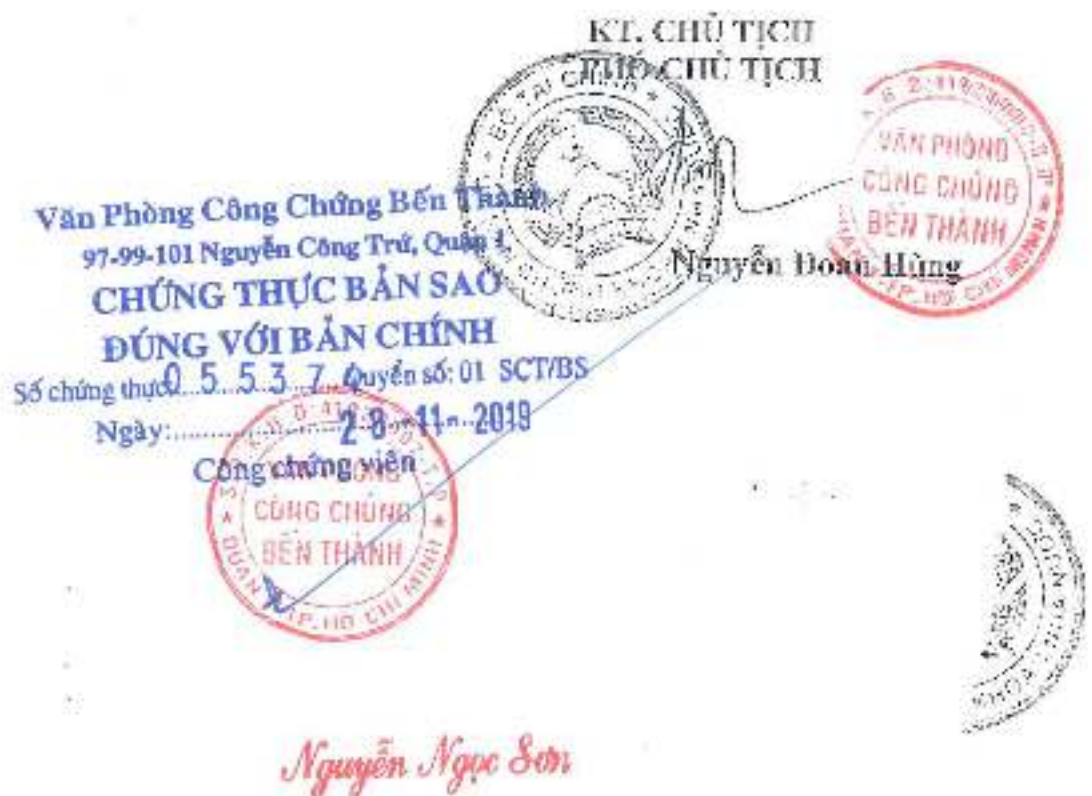 KT. CHỦ TỊCH
PHÓ CHỦ TỊCH
BỘ TÀI CHÍNH
VĂN PHÒNG
CÔNG CHỨNG
BẾN THÀNH
TP. HỒ CHÍ MINH
Nguyễn Đoan Hùng
Văn Phòng Công Chứng Bến Thành
97-99-101 Nguyễn Công Trứ, Quận 1,
CHỨNG THỰC BẢN SAO
ĐÚNG VỚI BẢN CHÍNH
Số chứng thực 055374 Quyển số: 01 SCT/BS
Ngày: 28-11-2019
Công chứng viên
VĂN PHÒNG
CÔNG CHỨNG
BẾN THÀNH
QUẬN TP. HỒ CHÍ MINH
KHOÁN
Nguyễn Ngọc Sơn